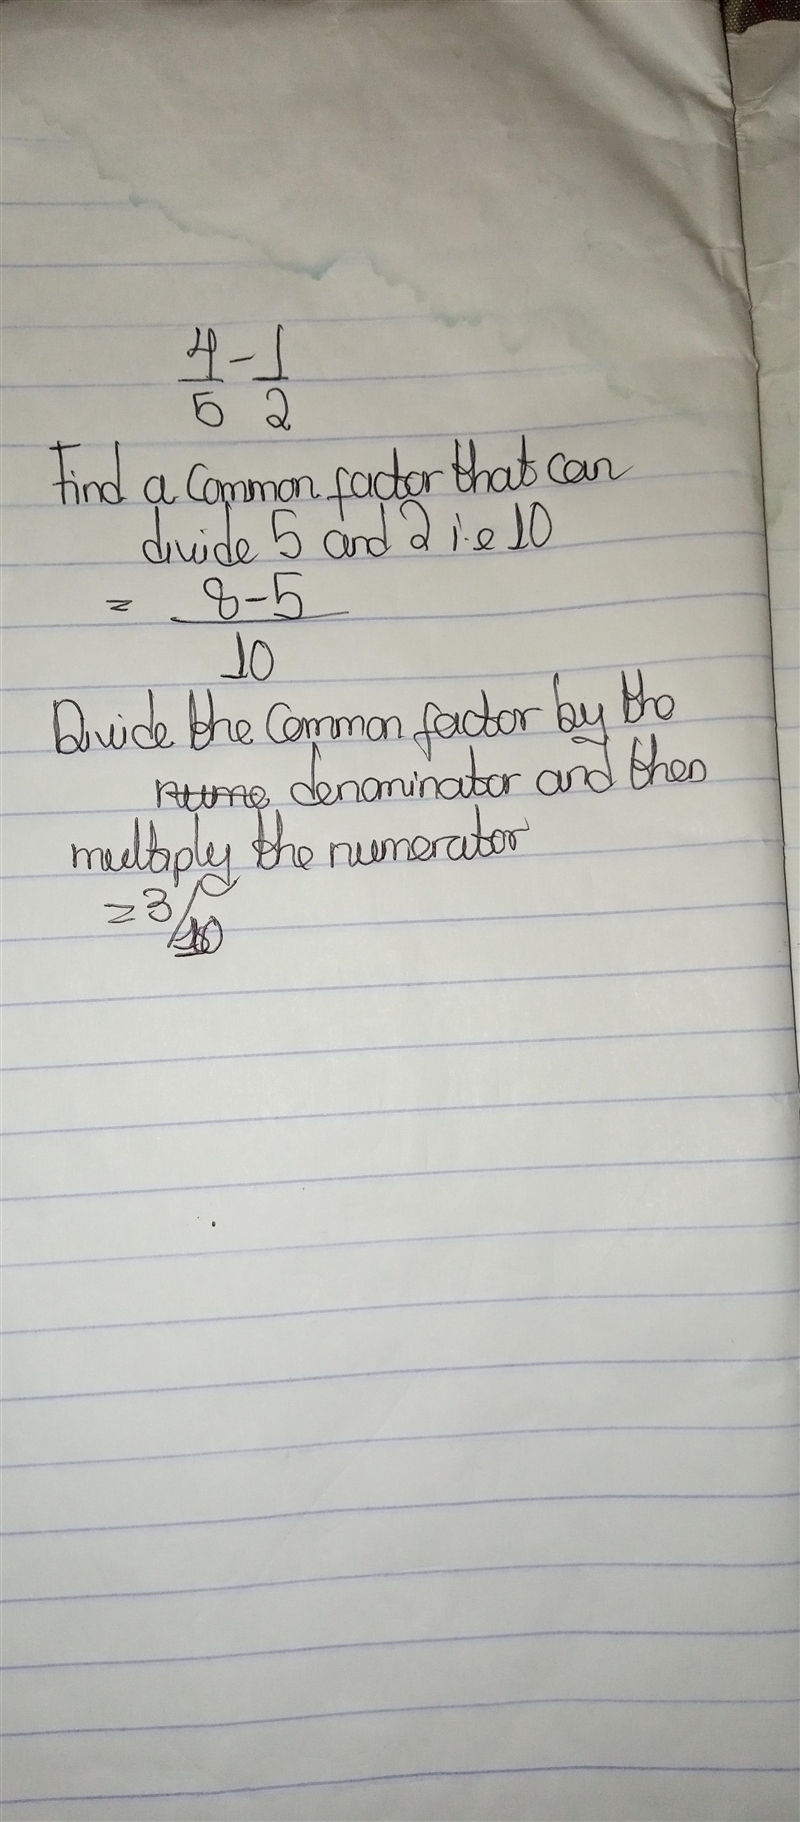 4/5 - 1/2
Find a Common factor that can
divide 5 and 2 i.e 10
= 8-5
10
Divide the Common factor by the
denominator and then
multiply the numerator
= 3/10